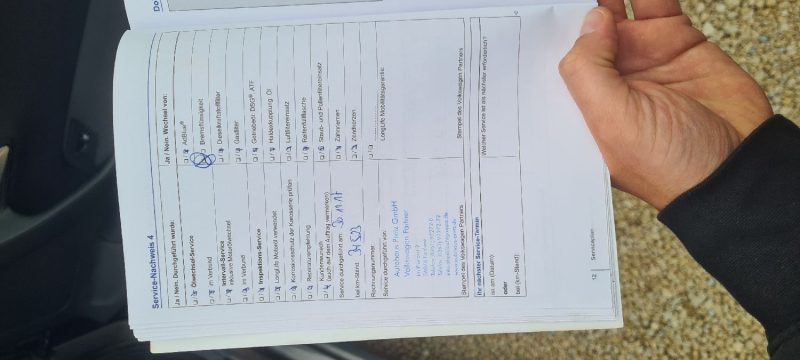 Service-Nachweis 4
Ja / Nein. Durchgeführt wurde:
Ölwechsel-Service
im Verbund
Intervall-Service
inklusive Motorölwechsel
im Verbund
Inspektions-Service
LongLife Motoröl verwendet
Korrosionsschutz der Karosserie prüfen
Reparaturempfehlung
Kundenwunsch
(auch auf dem Auftrag vermerken)
Service durchgeführt am:
bei km-Stand: 34523
Rechnungsnummer:
Service durchgeführt von:
Autohaus Prinz GmbH
Volkswagen Partner
Stempel des Volkswagen Partners
Ja / Nein. Wechsel von:
AdBlue®
Bremsflüssigkeit
Dieselkraftstofffilter
Gasfilter
Getriebeöl: DSG®, ATF
Haldexkupplung: Öl
Luftfiltereinsatz
Reifenfüllflasche
Staub- und Pollenfiltereinsatz
Zahnriemen
Zündkerzen
LongLife Mobilitätsgarantie:
Stempel des Volkswagen Partners
Ihr nächster Service-Termin
ist am (Datum):
oder
bei (km-Stand):
Welcher Service ist als nächster erforderlich?
12
Serviceplan